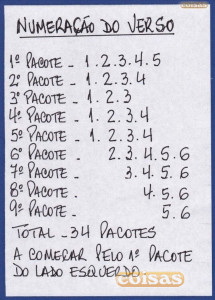 coisas
NUMERAÇÃO DO VERSO
1º PACOTE - 1.2.3.4.5
2º PACOTE - 1.2.3.4
3º PACOTE - 1.2.3
4º PACOTE - 1.2.3.4
5º PACOTE - 1.2.3.4
6º PACOTE - 2.3.4.5.6
7º PACOTE - 3.4.5.6
8º PACOTE - 4.5.6
9º PACOTE - 5.6
TOTAL - 34 PACOTES
A COMEÇAR PELO 1º PACOTE
DO LADO ESQUERDO
coisas